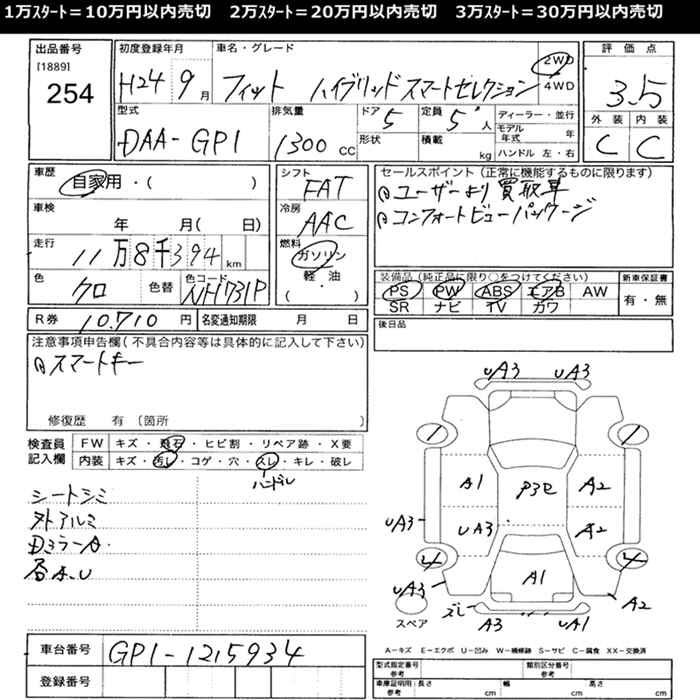 1万ｽﾀｰﾄ＝10万円以内売切　2万ｽﾀｰﾄ＝20万円以内売切　3万ｽﾀｰﾄ＝30万円以内売切
出品番号
[1889]
254
初度登録年月
H24 9月
車名・グレード
フィット ハイブリッド スマートセレクション
2WD
4WD
評価点
3.5
外装 内装
C C
型式
DAA-GP1
排気量
1300 cc
ドア
5
形状
定員
5人
積載
kg
ディーラー・並行
モデル年式 年
ハンドル 左・右
車歴
自家用・( )
車検
年 月( 日)
走行
11万8千394 km
色
クロ
色替
色コード
NH731P
シフト
FAT
冷房
AAC
燃料
ガソリン
軽・油
( )
セールスポイント（正常に機能するものに限ります）
ユーザーより買取車
コンフォートビューパッケージ
装備品（純正品に限り○をつけてください）
PS PW ABS エアB AW
SR ナビ TV カワ
新車保証書
有・無
後日品
R券 10.710 円
名変通知期限 月 日
注意事項申告欄（不具合内容等は具体的に記入して下さい）
スマートキー
修復歴 有（箇所
検査員記入欄
FW キズ・飛石・ヒビ割・リペア跡・X要
内装 キズ・汚レ・コゲ・穴・スレ・キレ・破レ
ハンドル
シートシミ
外アルミ
DミラーA
各A.U
uA3 uA3
A1 A2
uA3 uA3 A2
4 4
A1
uA3 A2
スペア
ズレ A3 uA1
A－キズ E－エクボ U－凹み W－補修跡 S－サビ C－腐食 XX－交換済
車台番号
GP1-1215934
登録番号
型式指定番号 参考
類別区分番号 参考
車庫証明用 参考
長さ cm 幅 cm 高さ cm